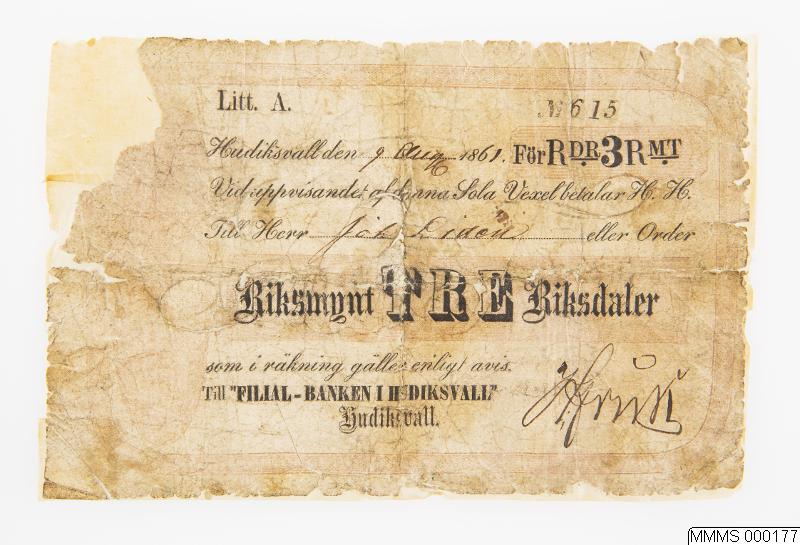 Litt. A.
№ 615
Hudiksvall den 9 Aug 1861. För RDR 3 RMT
Vid uppvisandet af denna Sola Vexel betalar H. H.
Till Herr Joh Lidén eller Order
Riksmynt TRE Riksdaler
som i räkning gäller enligt avis.
Till "FILIAL-BANKEN I HUDIKSVALL"
Hudiksvall.
MMMS 000177